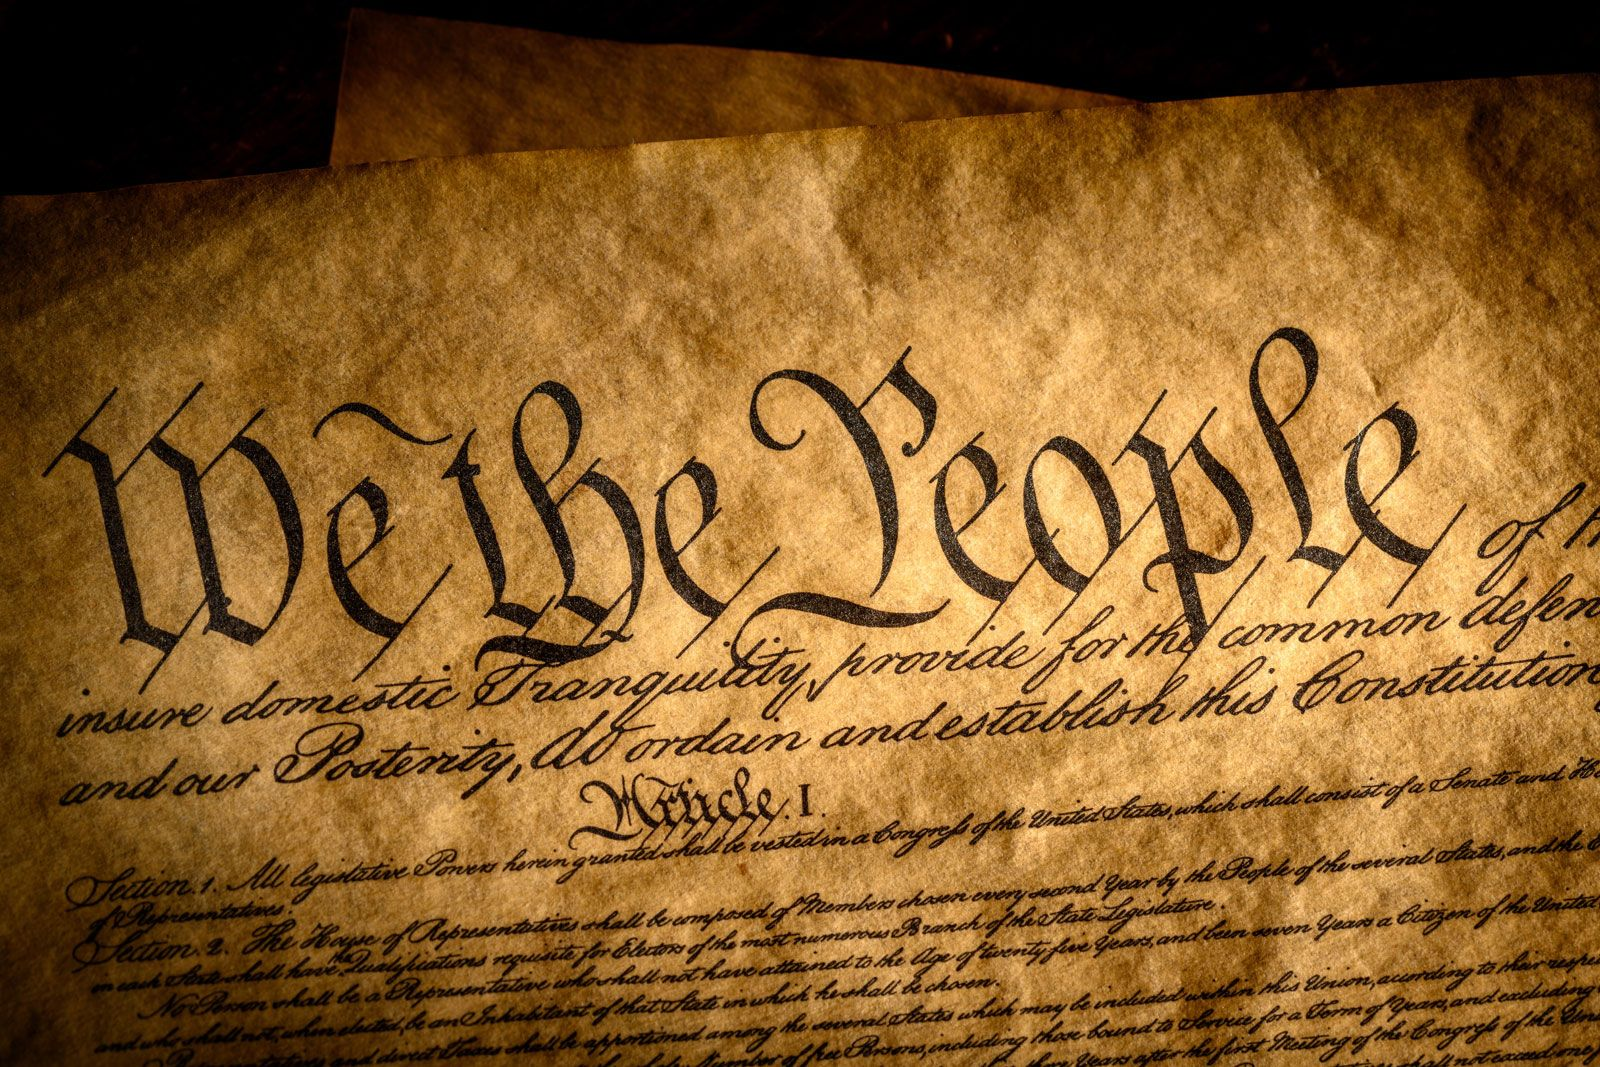 We the People of
insure domestic Tranquility, provide for the common defen
and our Posterity, do ordain and establish this Constitution
Article. I.
Section. 1. All legislative Powers herein granted shall be vested in a Congress of the United States, which shall consist of a Senate and Ho
of Representatives.
Section. 2. The House of Representatives shall be composed of Members chosen every second Year by the People of the several States, and the E
in each State shall have the Qualifications requisite for Electors of the most numerous Branch of the State Legislature.
No Person shall be a Representative who shall not have attained to the Age of twenty five Years, and been seven Years a Citizen of the United
and who shall not, when elected, be an Inhabitant of that State in which he shall be chosen.
Representatives and direct Taxes shall be apportioned among the several States which may be included within this Union, according to their respe
Number of free Persons, including those bound to Service for a Term of Years, and excluding
Years after the first Meeting of the Congress of the Uni
shall not exceed one f